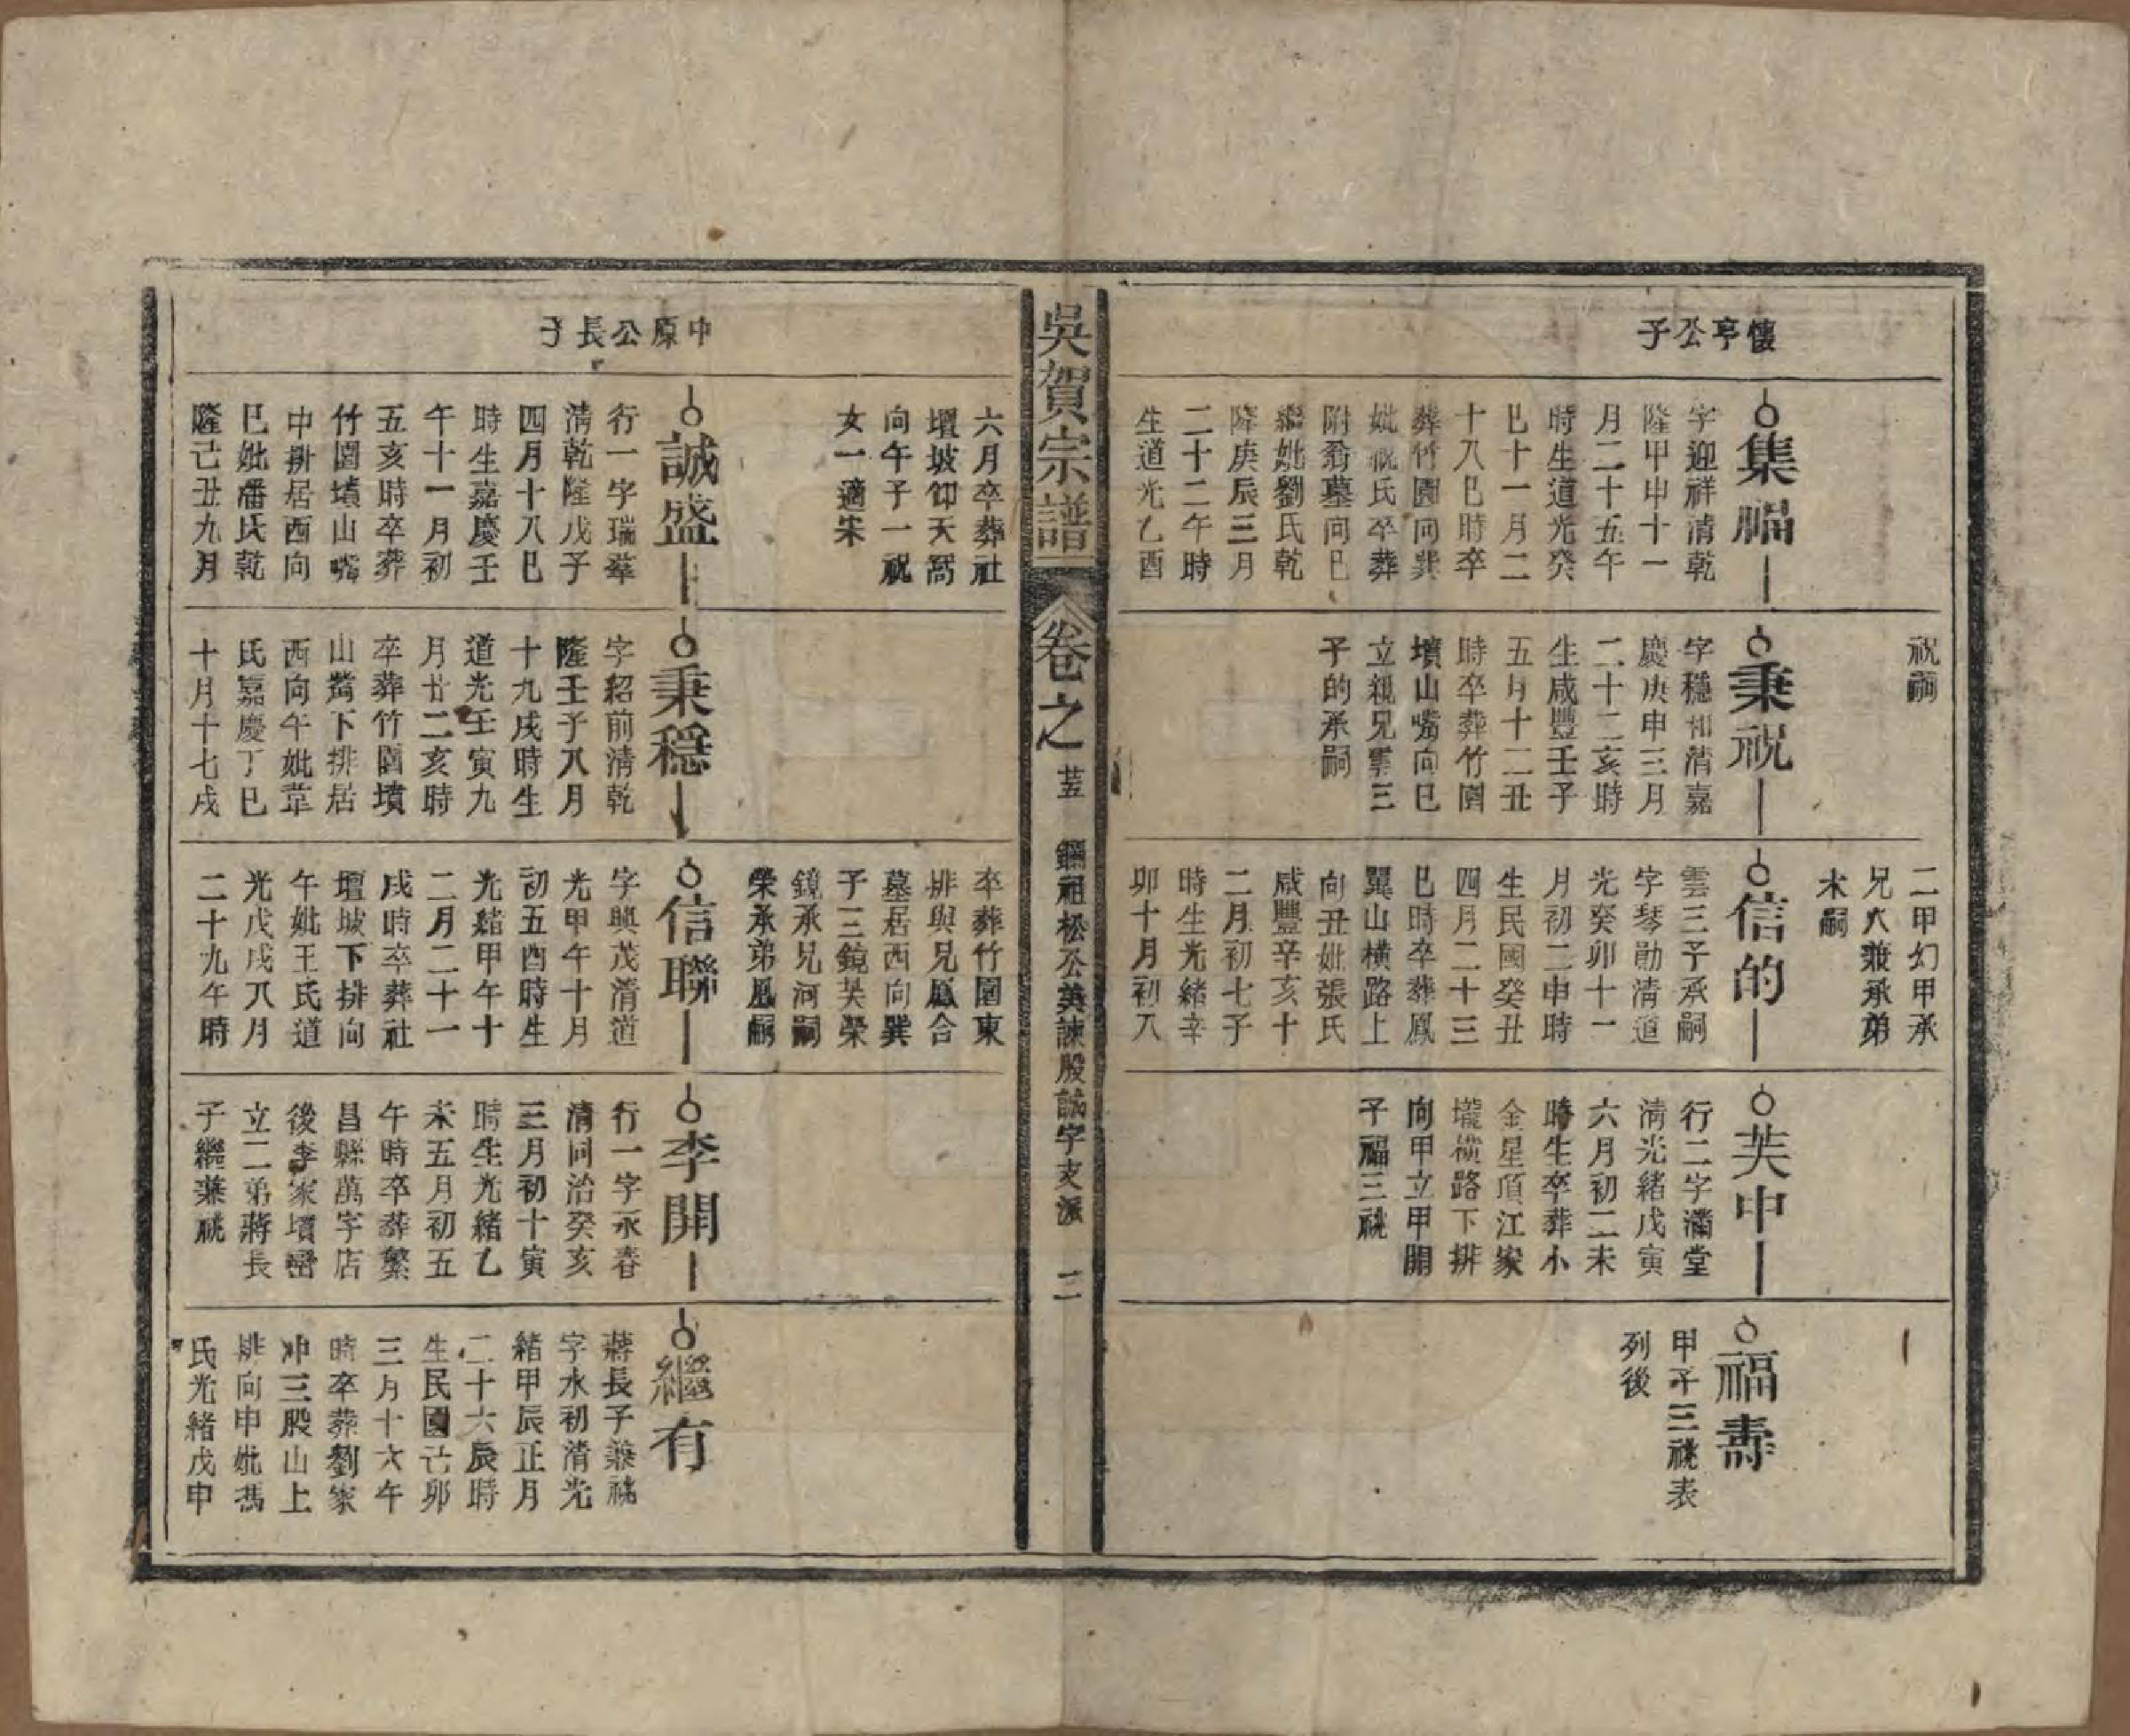 懷亭公子
集福
字迎祥清乾
隆甲申十一
月二十五午
時生道光癸
巳十一月二
十八巳時卒
葬竹園向巽
妣祝氏卒葬
附翁墓向巳
繼妣劉氏乾
隆庚辰三月
二十二午時
生道光乙酉
六月卒葬社
壇坡仰天窩
向午子一祝
女一適宋
祝嗣
秉祝
字穩和清嘉
慶庚申三月
二十二亥時
生咸豐壬子
五月十二丑
時卒葬竹園
墳山嘴向巳
立親兄雲三
子的承嗣
二甲幻甲承
兄六兼承弟
木嗣
信的
雲三子承嗣
字琴勛清道
光癸卯十一
月初二申時
生民國癸丑
四月二十三
巳時卒葬鳳
翼山橫路上
向丑妣張氏
咸豐辛亥十
二月初七子
時生光緒辛
卯十月初八
卒葬竹園東
排與兄鳳合
墓居西向巽
子三鏡芙榮
鏡承兄河嗣
榮承弟鳳嗣
芙中
行二字滿堂
清光緒戊寅
六月初二未
時生卒葬小
金星項江家
壠橫路下排
向甲立甲開
子福三祧
福壽
甲子三祧表
列後
吳賀宗譜
卷之
荳
鑭祖松公英諫股誠字支派
二
中原公長子
誠盛
行一字瑞葦
清乾隆戊子
四月十八巳
時生嘉慶壬
午十一月初
五亥時卒葬
竹園墳山嘴
中排居西向
巳妣潘氏乾
隆己丑九月
秉穩
字紹前清乾
隆壬子八月
十九戌時生
道光壬寅九
月廿二亥時
卒葬竹園墳
山嘴下排居
西向午妣韋
氏嘉慶丁巳
十月十七戌
信聯
字興茂清道
光甲午十月
初五酉時生
光緒甲午十
二月二十一
戌時卒葬社
壇坡下排向
午妣王氏道
光戊戌八月
二十九午時
李開
行一字永春
清同治癸亥
三月初十寅
時生光緒乙
未五月初五
午時卒葬繁
昌縣萬字店
後李家墳巒
立二弟蔣長
子繼兼祧
繼有
蔣長子兼祧
字永初清光
緒甲辰正月
二十六辰時
生民國己卯
三月十六午
時卒葬劉家
冲三股山上
排向申妣馮
氏光緒戊申